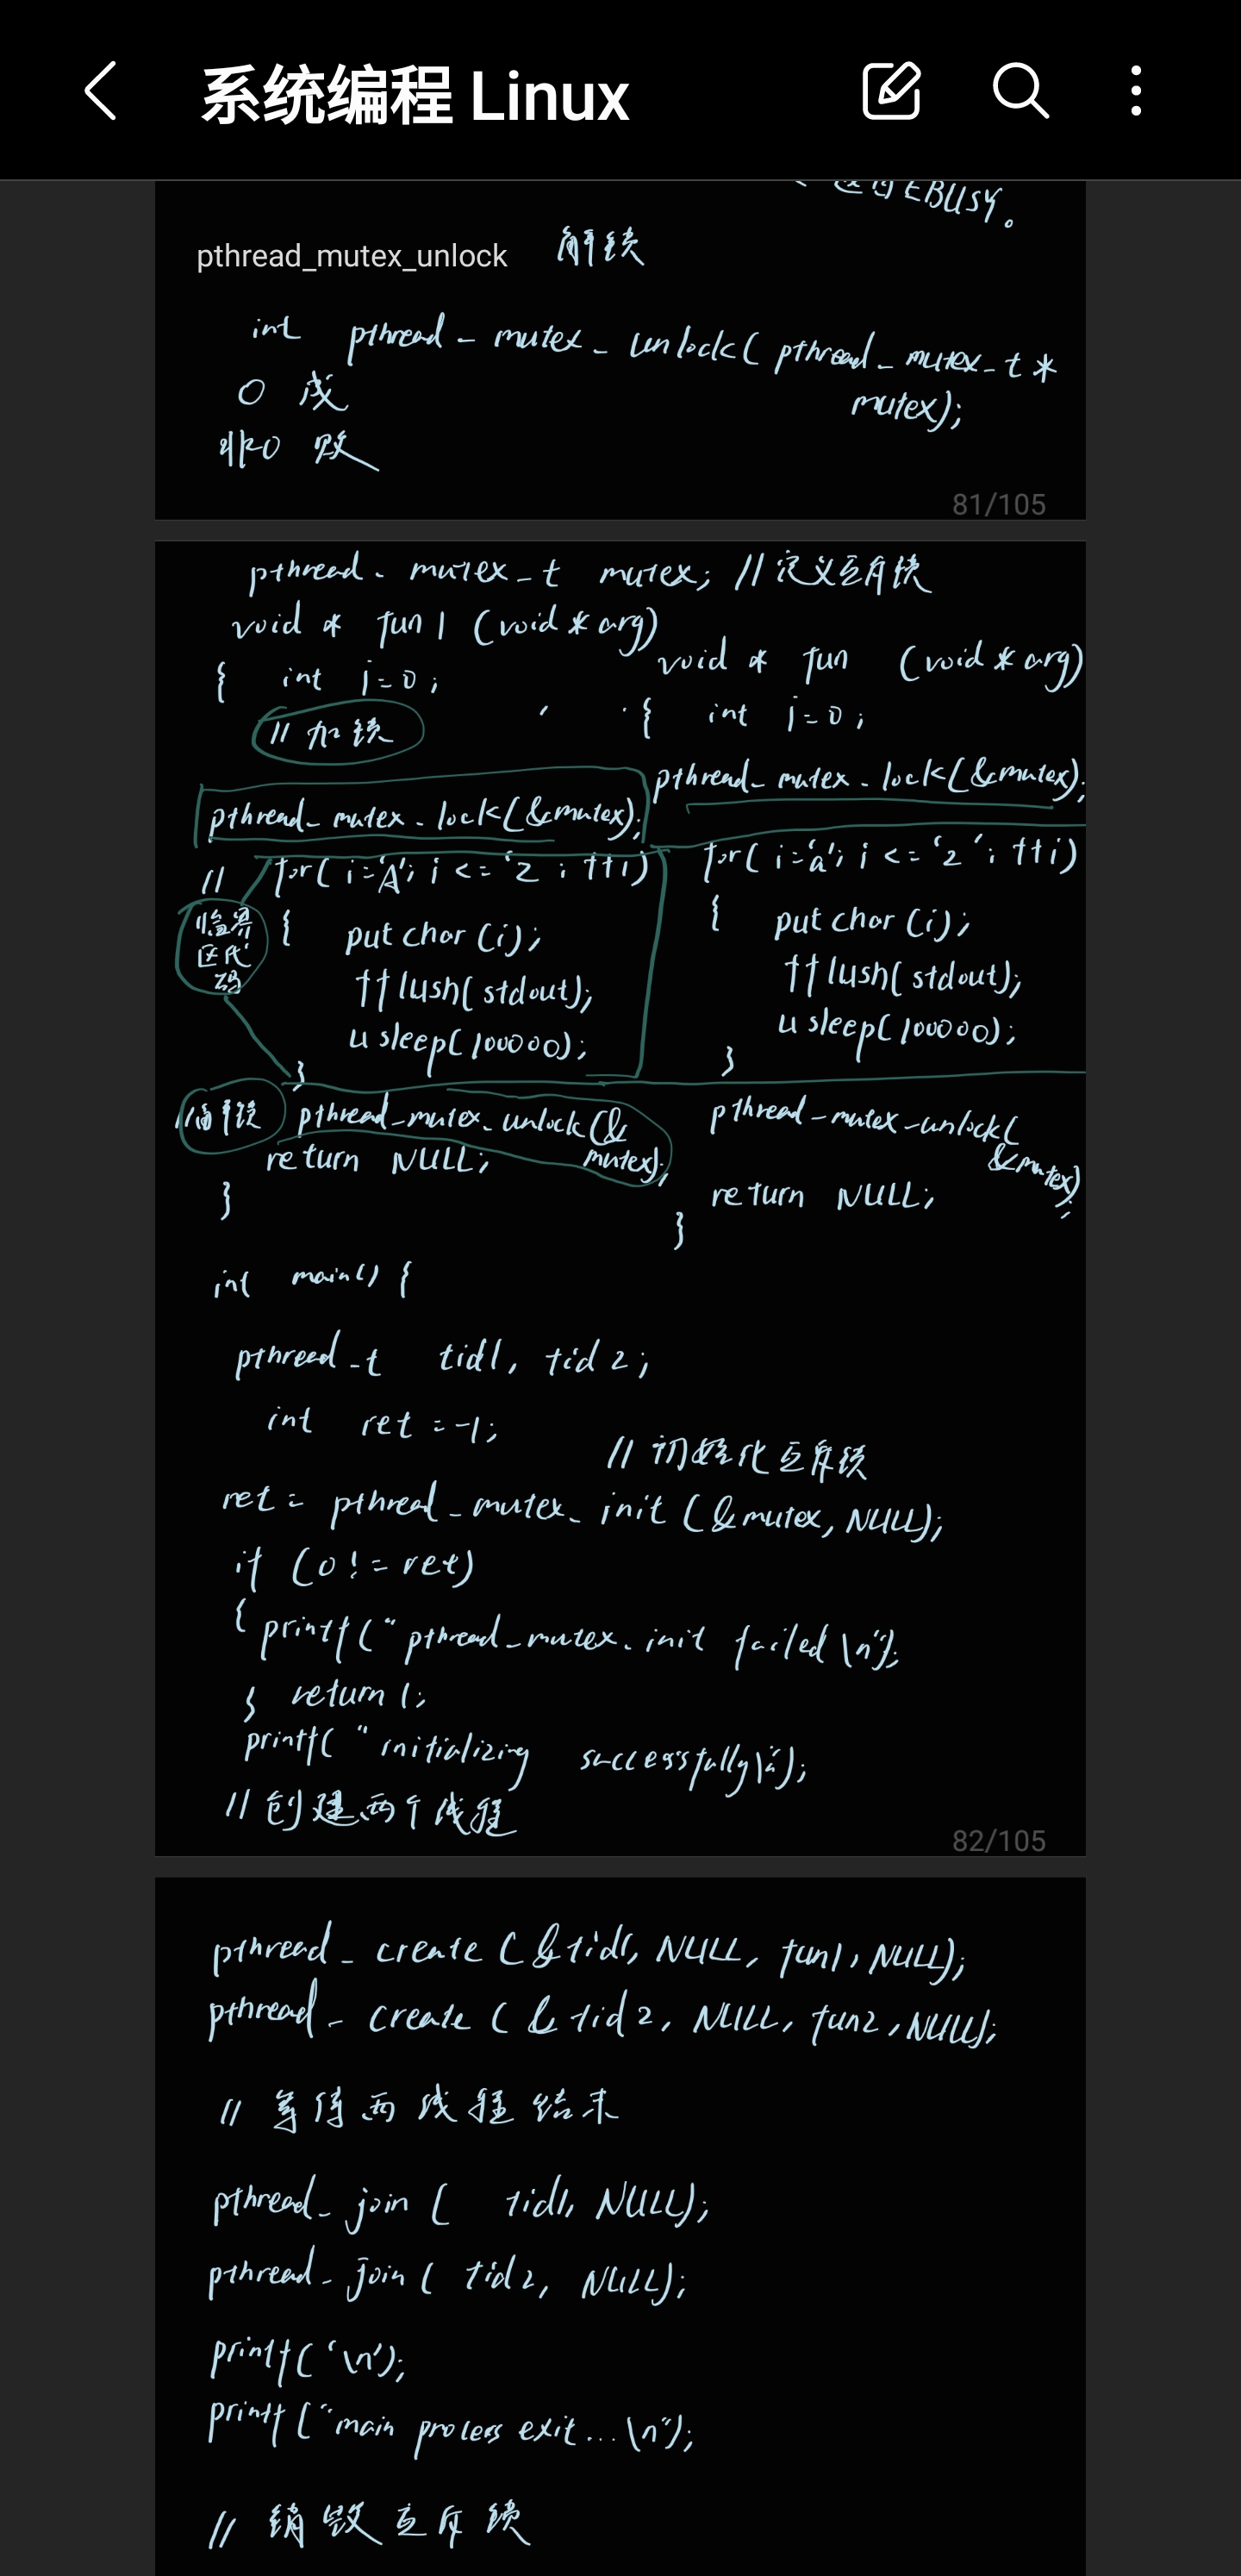 系统编程 Linux
返回EBUSY。
pthread_mutex_unlock 解锁
int pthread_mutex_unlock(pthread_mutex_t *
mutex);
0 成
非0 败
81/105
pthread_mutex_t mutex; //定义互斥锁
void * fun1 (void * arg)
{ int i=0;
// 加锁
pthread_mutex_lock(&mutex);
// for( i='A'; i <= 'Z'; ++i)
临界
区代
码
{ putchar(i);
fflush(stdout);
usleep(100000);
}
//解锁 pthread_mutex_unlock(&
mutex);
return NULL;
}
void * fun (void * arg)
{ int i=0;
pthread_mutex_lock(&mutex);
for( i='a'; i <= 'z'; ++i)
{ putchar(i);
fflush(stdout);
usleep(100000);
}
pthread_mutex_unlock(
&mutex);
return NULL;
}
int main() {
pthread_t tid1, tid2;
int ret = -1;
// 初始化互斥锁
ret = pthread_mutex_init(&mutex, NULL);
if (0 != ret)
{ printf("pthread_mutex_init failed\n");
} return 1;
printf("initializing successfully\n");
// 创建两个线程
82/105
pthread_create(&tid1, NULL, fun1, NULL);
pthread_create(&tid2, NULL, fun2, NULL);
// 等待两线程结束
pthread_join( tid1, NULL);
pthread_join( tid2, NULL);
printf('\n');
printf("main process exit...\n");
// 销毁互斥锁